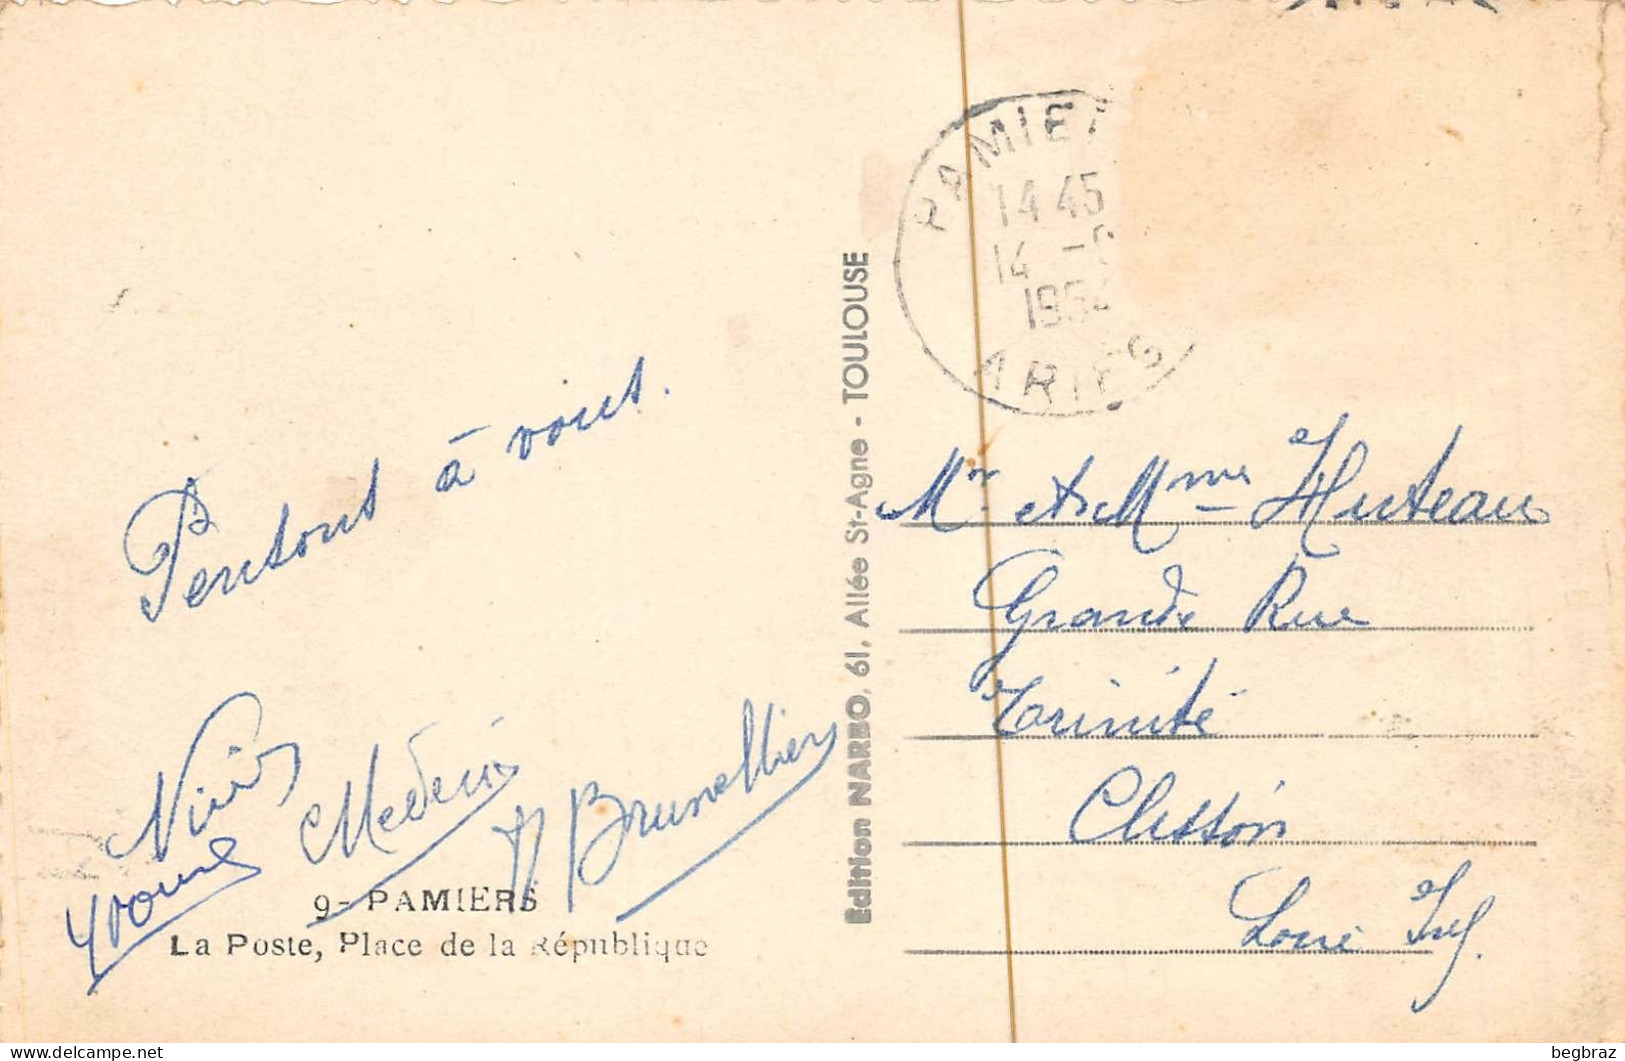 Pensons à vous.
Medevi
H Brunelliers
Yvonne
9- PAMIERS
La Poste, Place de la République
Edition NARBO, 61, Allée St-Agne - TOULOUSE
PAMIE
14 45
14 -
195
ARIEG
Mr et Mme Huteau
Grande Rue
Trinité
Clisson
Loire Inf.
begbraz